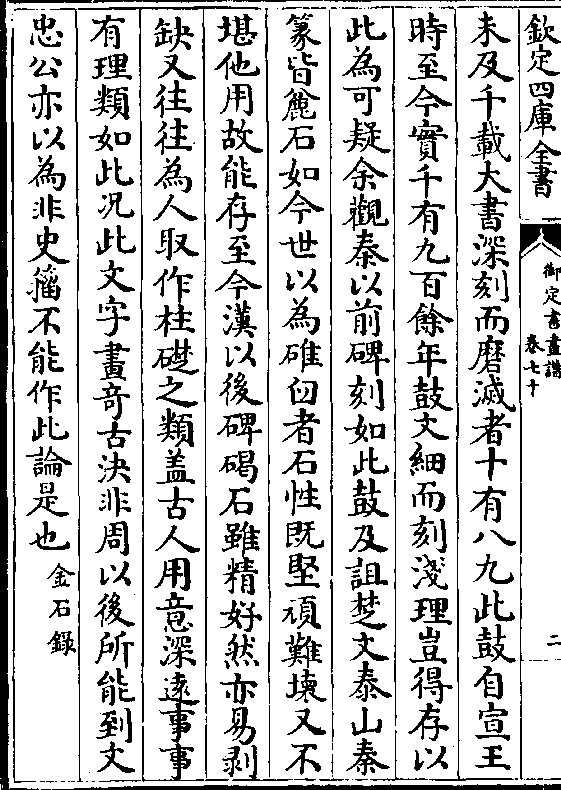 欽定四庫全書
御定書畫譜
卷七十
二
未及千載大書深刻而磨滅者十有八九此鼓自宣王
時至今實千有九百餘年鼓文細而刻淺理豈得存以
此為可疑余觀秦以前碑刻如此鼓及詛楚文泰山秦
篆皆麄石如今世以為碓臼者石性既堅頑難壞又不
堪他用故能存至今漢以後碑碣石雖精好然亦易剥
缺又往往為人取作柱礎之類盖古人用意深逺事事
有理類如此况此文字畫竒古決非周以後所能到文
忠公亦以為非史籀不能作此論是也
金石録